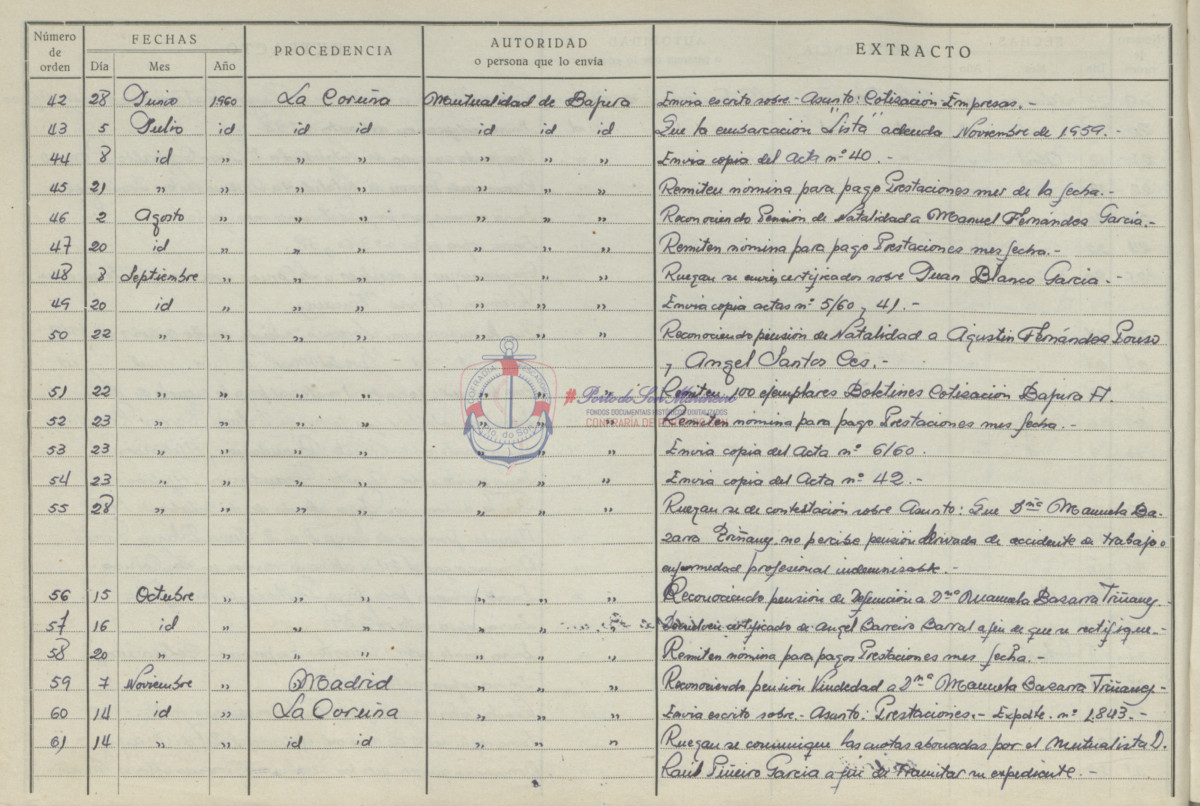 Número de orden FECHAS PROCEDENCIA AUTORIDAD o persona que lo envía EXTRACTO
Día Mes Año
42 28 Junio 1.960 La Coruña Mutualidad de Bajura Envia escrito sobre - Asunto: Cotización Empresas. -
43 5 Julio id id id id id id Que la embarcación "Lista" adeuda Noviembre de 1.959. -
44 8 id " " " " " " Envia copia del Acta nº 40. -
45 21 " " " " " " " Remiten nómina para pago Prestaciones mes de la fecha. -
46 2 Agosto " " " " " " Reconociendo Pensión de Natalidad a Manuel Fernández García. -
47 20 id " " " " " " Remiten nómina para pago Prestaciones mes fecha. -
48 8 Septiembre " " " " " " Ruegan se envien certificados sobre Juan Blanco Garcia -
49 20 id " " " " " " Envia copia actas nº 5/60 y 41. -
50 22 " " " " " " " Reconociendo pensión de Natalidad a Agustin Fernández Pouso
y Angel Santos Ces. -
51 22 " " " " " " " Remiten 100 ejemplares Boletines Cotización Bajura A.
52 23 " " " " " " " Remiten nómina para pago Prestaciones mes fecha. -
53 23 " " " " " " " Envia copia del Acta nº 6/60.
54 23 " " " " " " " Envia copia del Acta nº 42. -
55 28 " " " " " " " Ruegan se de contestación sobre Asunto: Que Dñª Manuela Ba-
zarra Triñanes no percibe pensión derivada de accidente de trabajo o
enfermedad profesional indemnizable. -
56 15 Octubre " " " " " " Reconociendo pensión de Defunción a Dñª Manuela Bazarra Triñanes -
57 16 id " " " " " certificado de Angel Barreiro Barral a fin de que se rectifique. -
58 20 " " " " " " " Remiten nómina para pagos Prestaciones mes fecha. -
59 7 Noviembre " Madrid " " " Reconociendo pensión Viudedad a Dñª Manuela Bazarra Triñanes -
60 14 id " La Coruña " " " Envia escrito sobre - Asunto: Prestaciones. - Expdte. nº 1.843. -
61 14 " " id id " " " Ruegan se comunique las cuotas abonadas por el Mutualista D.
Raúl Piñeiro Garcia a fin de tramitar su expediente. -
COFRADIA PESCADORES
Pto. do Son
# Porto do Son Mariñeiro
FONDOS DOCUMENTAIS HISTÓRICOS DIXITALIZADOS
CONFRARIA DE